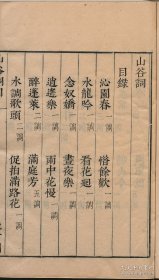 山谷詞
目錄
沁園春 一調 惜餘歡 一調
水龍吟 一調 看花迴 一調
念奴嬌 一調 晝夜樂 一調
逍遙樂 一調 雨中花慢 一調
醉蓬萊 二調 滿庭芳 五調
水調歌頭 二調 促拍滿路花
山谷詞